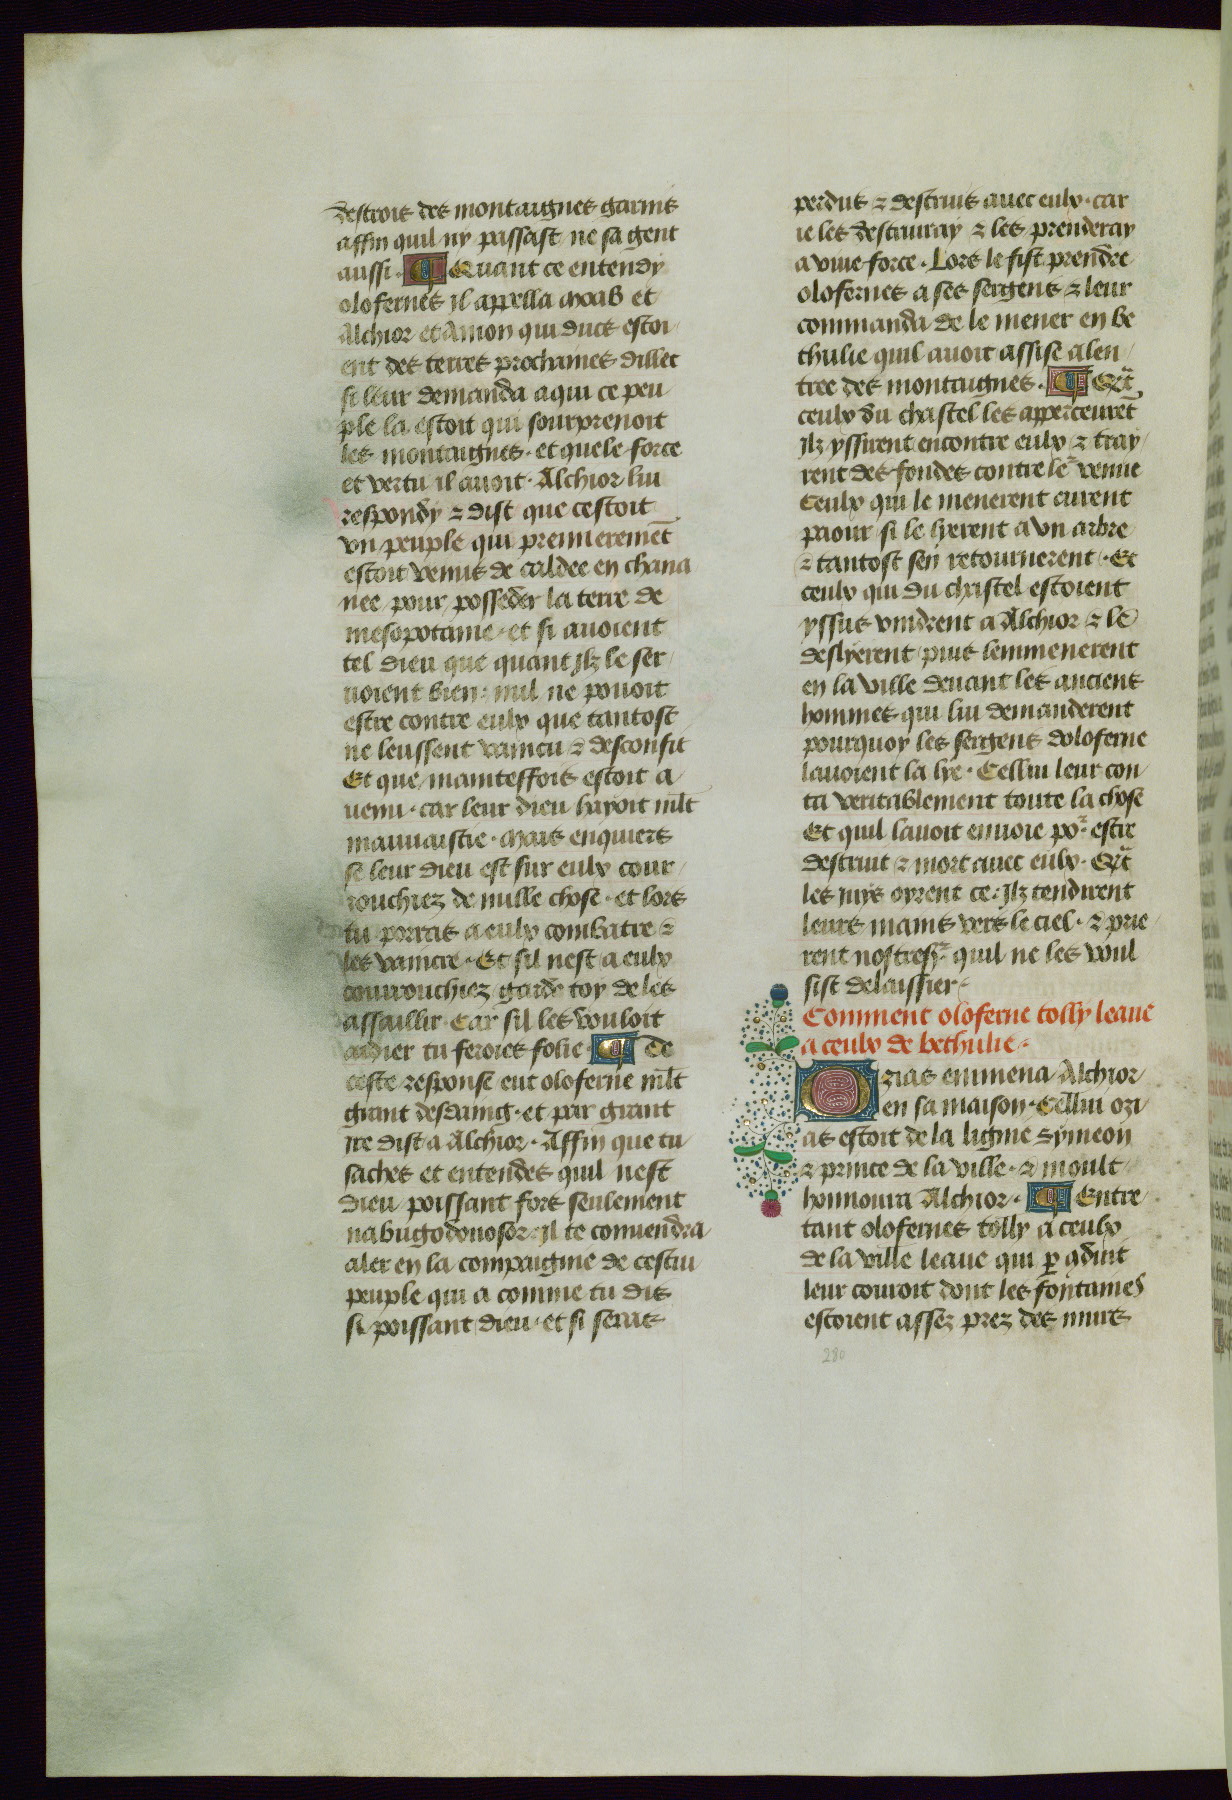 destrois des montaignes garnis
affin quil ny passast ne sa gent
aussi. Quant ce entendy
olofernes Il appella moab et
Alchior et Amon qui ducs estoi
ent des terres prochaines dillec
si leur demanda a qui ce peu
ple la estoit qui sourprenoit
les montaignes. et quele force
et vertu il auoit. Alchior lui
respondy ⁊ dist que cestoit
vn peuple qui premieremēt
estoit venus de caldee en chana
nee pour posseder la terre de
mesopotame. et si auoient
tel dieu que quant Ilz le ser
uoient bien: nul ne pouoit
estre contre eulx que tantost
ne leussent vaincu ⁊ desconfit
Et que maintesfois estoit a
uenu. car leur dieu hayoit mlt
mauuaistie. Mais enquiers
se leur dieu est sur eulx cour
rouchiez de nulle chose. et lors
tu porras a eulx combatre ⁊
les vaincre. Et sil nest a eulx
courrouchiez garde toy de les
assaillir. Car sil les vouloit
aidier tu feroies folie. De
ceste response eut oloferne mlt
grant desdaing. et par grant
ire dist a Alchior. Affin que tu
saches et entendes quil nest
dieu poissant fors seulement
nabugodonosor: il te conuendra
aler en la compaignie de cestui
peuple qui a comme tu dis
si poissant dieu. et si seras
perdus ⁊ destruis auec eulx. car
ie les destruiray ⁊ les prenderay
a viue force. Lors le fist prendre
olofernes a ses sergens ⁊ leur
commanda de le mener en be
thulie quil auoit assise a len
tree des montaignes. Qāt
ceulx du chastel les apperceurēt
Ilz yssirent encontre eulx ⁊ tray
rent des fondes contre leʳ venue
Ceulx qui le menerent eurent
paour si le lyerent a vn arbre
⁊ tantost sen retournerent. Et
ceulx qui du chastel estoient
yssus vindrent a Alchior ⁊ le
deslyerent puis lemmenerent
en la ville deuant les anciens
hommes qui lui demanderent
pourquoy les sergens doloferne
lauoient la lye. Cellui leur con
ta veritablement toute la chose
Et quil lauoit enuoie poʳ estre
destruit ⁊ mort auec eulx. Qāt
les iuys oyrent ce: Ilz tendirent
leurs mains vers le ciel. ⁊ prie
rent nostre sʳ quil ne les voul
sist delaissier.
Comment oloferne tolly leaue
a ceulx de bethulie.
Ozias emmena Alchior
en sa maison. Cellui ozi
as estoit de la lignie symeon
⁊ prince de la ville. ⁊ moult
honnoura Alchior. Entre
tant olofernes tolly a ceulx
de la ville leaue qui ꝑ 9duit
leur couroit dont les fontaines
estoient assez prez des murs
280